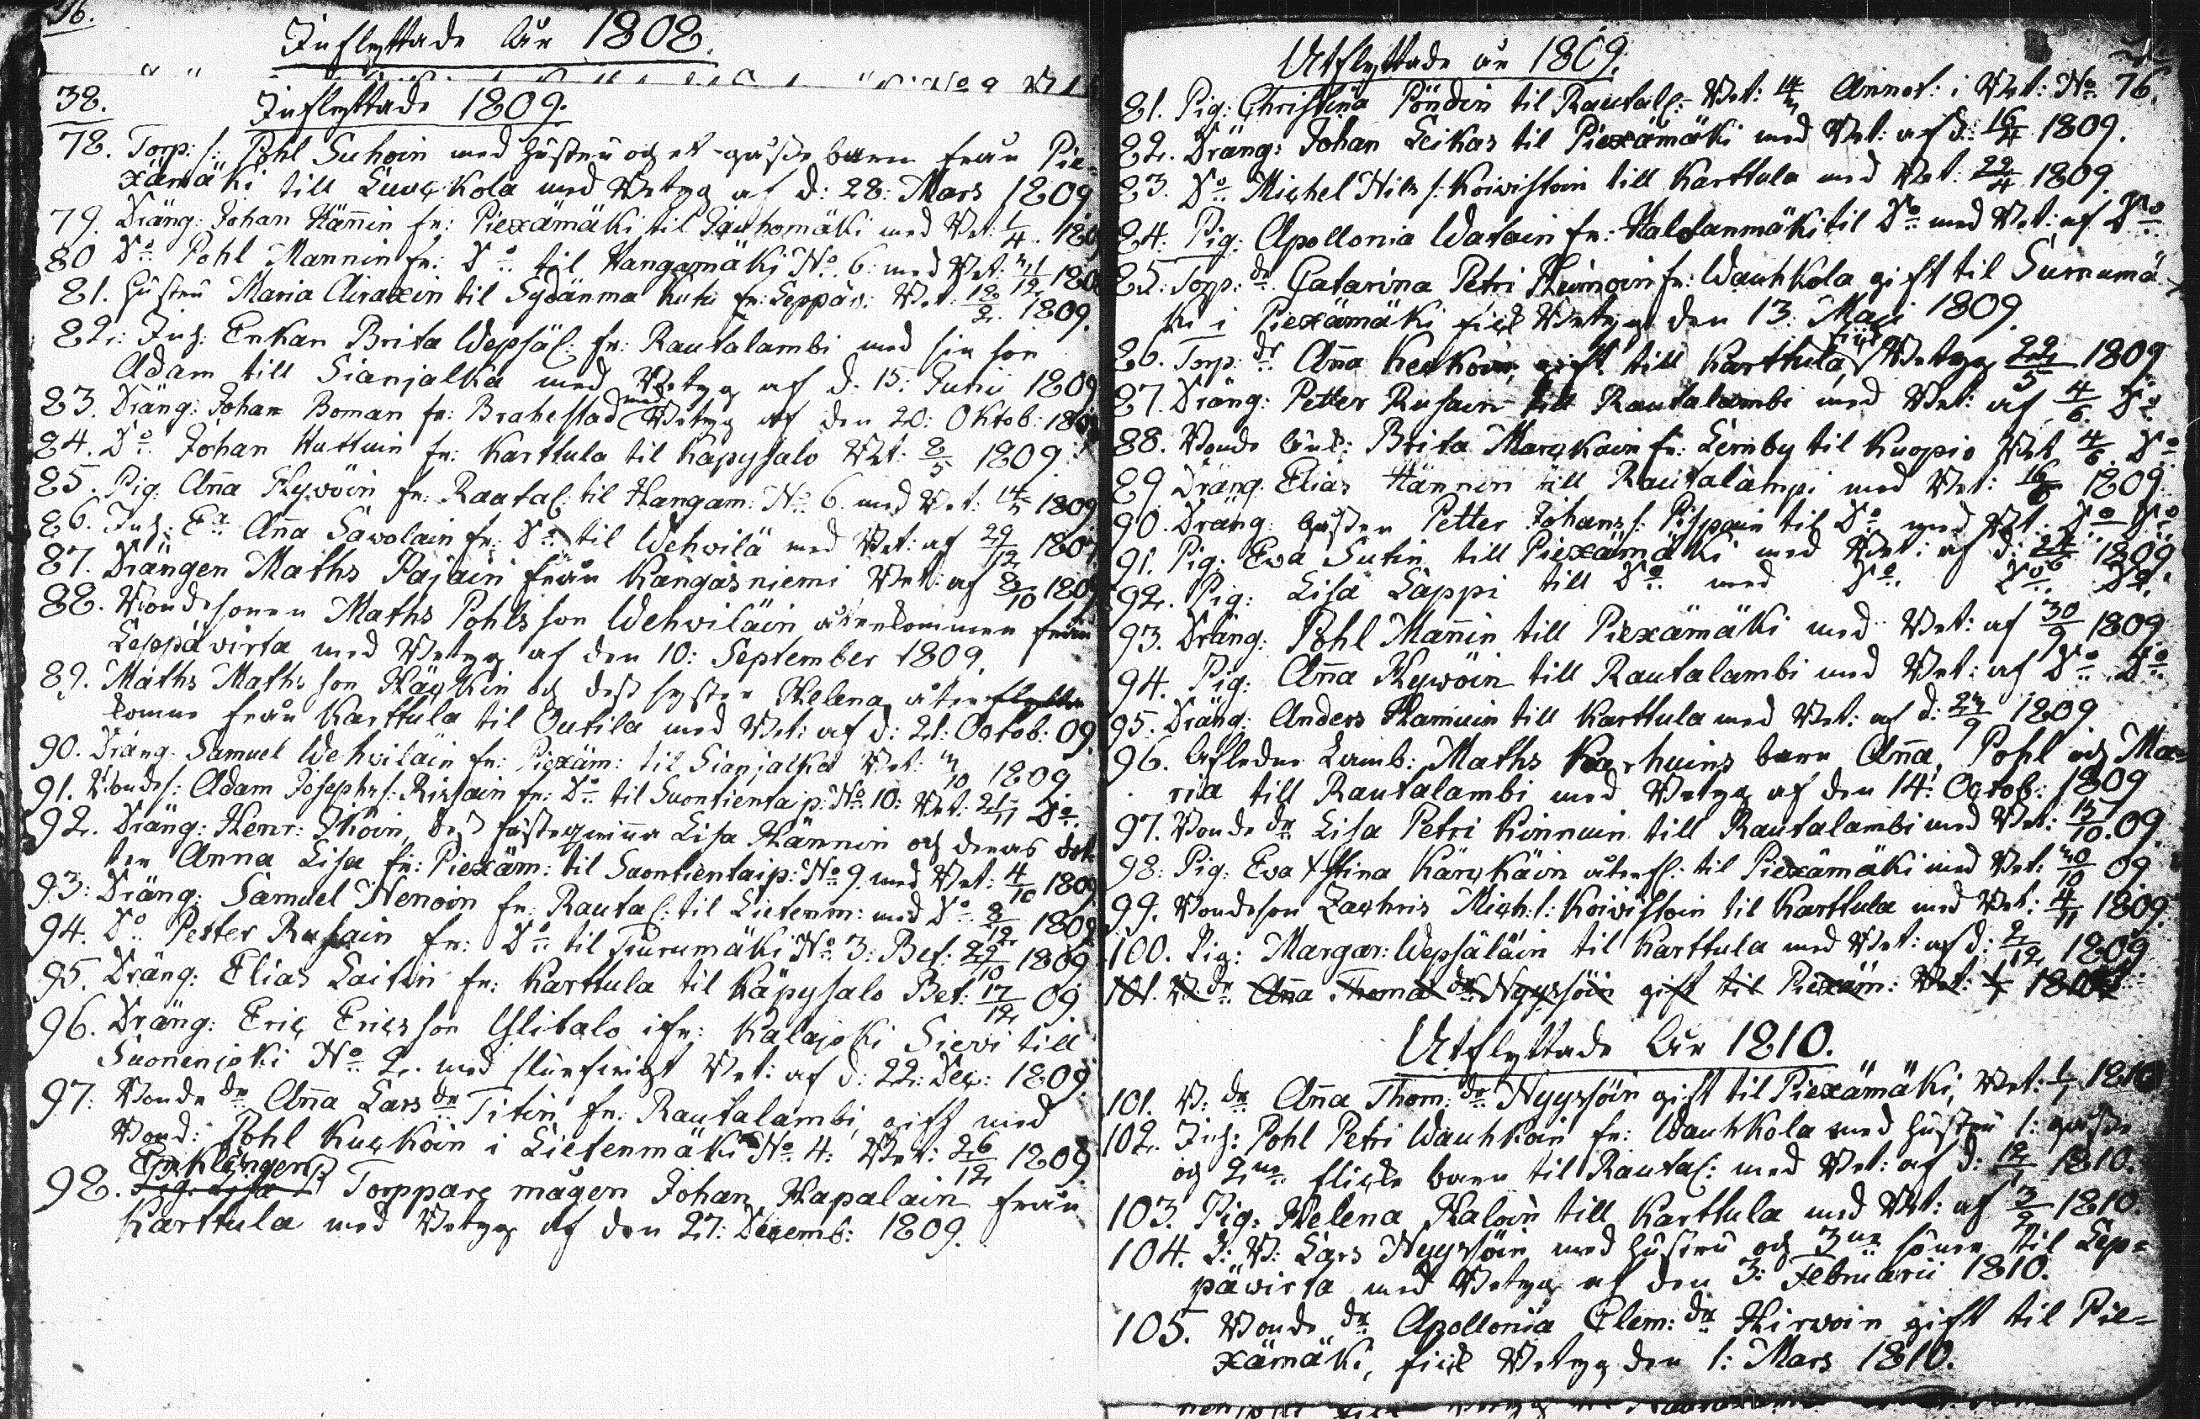 36.
Inflyttade År 1808.
38.
Inflyttade 1809.
78. Torp: s: Pohl Suhoin med hustru och et gosse barn från Pie-
xämäki till Suoc-Kola med Betyg af d: 28: Mars 1809
79. Dräng: Johan Hännin fr: Piexämäki til Jauhomäki med Bet: 1/4 180
80 Do Pohl Mannin fr: Do til Hangamäki No. 6: med Bet: 12 180
81. Hustru Maria Airaxin til Sydänma fr: Leppäv: Bet: 18/2 1809.
82. Inh: Enkan Brita Wepsäl: fr: Rautalambi med sin son
Adam till Sianjalka med Betyg af d. 15: Junii 1809
83. Dräng: Johan Boman fr: Brahestad med Betyg af den 20: Oktob: 180
84. Do Johan Huttuin fr: Karttula til Käpysalo Bet: 8/5 1809
85. Pig: Anna Hywöin fr: Rautal: til Hangam: No 6. med Bet: 1809
86. Inh: Ea Anna Sawolain fr: Do til Wehvilä med Bet: af 29/12 1807
87. Drängen Maths Pajain från Kangasniemi Bet: af 8/10 180
88. Bondesonen Maths Pohls son Wehviläin återkommen från
Leppävirta med Betyg af den 10: September 1809.
89. Maths Maths son Häykin och dess syster Helena återflytta
komne från Karttula til Outila med Bet: af d: 21: Octob: 09.
90. Dräng: Samuel Wehviläin fr: Piexäm: til Sianjalka Bet: /10 1809
91. Bondes: Adam Josephs s: Rissain fr: Do til Suontientaip: No 10: Bet: 21/11 Do
92. Dräng: Henr: Ikoin, des fästeqvinna Lisa Hännin och deras dot
ter Anna Lisa fr: Piexäm: til Suontientaip: No 9 med Bet: 4/10 1809
93: Dräng: Samuel Henoin fr: Rautal: til Lietenm: med Do 8/12 1809
94. Do Petter Rusain fr: Do til Surumäki No 3: Bet: 29/10 1809
95. Dräng: Elias Laitin fr: Karttula til Käpysalo Bet: 17/12 09.
96. Dräng: Eric Ericsson Ylitalo ifr: Kalajoki Sievi till
Suonenjoki No 2. med Bet: af d: 22: Dec: 1809.
97: Bonde dr Anna Lars dr Titin fr: Rautalambi, gift med
Bond: Pohl Kuckoin i Lietenmäki No 4: Bet: 26/12 1809.
98. Pig: Lisa Torppare mågen Johan Hapalain från
Karttula med Betyg af den 27: Decemb: 1809.
Utflyttade år 1809.
81. Pig: Christina Pöndin til Rautal: Bet: 14/ Annot: i Bet: No 76.
82. Dräng: Johan Leikas til Piexämäki med Bet: af d: 16/4 1809.
83. Do Michel Nils s: Koiwistoin till Karttula med Bet: 22/4 1809.
84. Pig: Apollonia Watain fr: Halolanmäki til Do med Bet: af Do
85. Torp: dr Catarina Petri Heimoin fr: Wauhkola gift til Surnumä
ki i Piexämäki fick Betyg den 13: Maji 1809.
86. Torp: dr Anna Keckoin gift till Karttula, fick Betyg 22/5 1809
87. Dräng: Petter Rusain till Rautalambi med Bet: af 4/6 Do
88. Bonde änk: Brita Marckain fr: Lernby til Kuopio Bet 4/6 Do
89 Dräng: Elias Hännin till Rautalampi med Bet: 16/6 1809.
90. Dräng: Gossen Petter Johans s: Pippain til Do med Bet: Do Do
91. Pig: Eva Sutin till Piexämäki med Bet: af d: 24/6 1809
92. Pig: Lisa Lappi till Do med Do Do Do
93. Dräng: Pohl Mannin till Piexämäki med Bet: af 30/9 1809
94. Pig: Anna Hywöin till Rautalambi med Bet: af Do Do
95. Dräng: Anders Hamuin till Karttula med Bet: af d: 24/9 1809
96. Afledne Lamb: Maths Karhuins barn Anna, Pohl och Ma-
ria till Rautalambi med Betyg af den 14: Octob: 1809
97. Bonde dr Lisa Petri Kinnuin till Rautalambi med Bet: 15/10. 09
98: Pig: Eva Stina Kärckäin återfl: til Piexämäki med Bet: 30/10 09
99. Bondeson Zachris Mich: s: Koiwistoin til Karttula med Bet: 4/11 1809
100. Pig: Margar: Wepsäläin til Karttula med Bet: af d: 2/12 1809
101. B dr Anna Thoma dr Nyyssöin gift til Piexäm: Bet: 1/1 1810
Utflyttade År 1810.
101. B: dr Anna Thom: dr Nyyssöin gift til Piexämäki, Bet: 1/1 1810
102. Inh: Pohl Petri Wauhkoin fr: Wauhkola med hustru 1: gosse
och 2ne flicke barn til Rautal: med Bet: af d: 12/1 1810.
103. Pig: Helena Haloin till Karttula med Bet: af 3/2 1810.
104. L: B: Lars Nyyssöin med hustru och 3ne söner til Lep-
pävirta med Betyg af den 3: Februarii 1810.
105. Bonde dr Apollonia Clem: dr Hirwoin gift til Pie-
xämäki, fick Betyg den 1: Mars 1810.